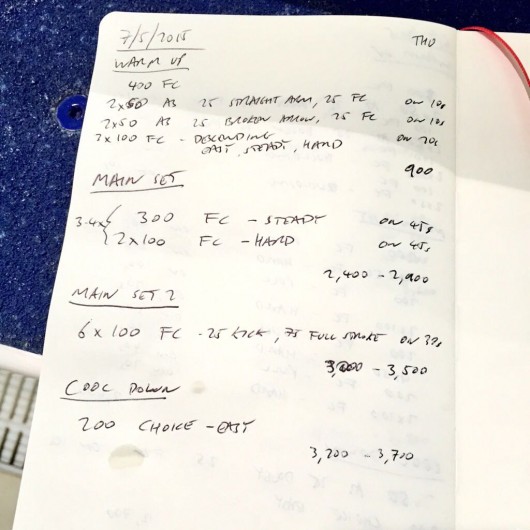 7/5/2015 THU
WARM UP
400 FC
2x50 AB 25 STRAIGHT ARM, 25 FC ON 10s
2x50 AB 25 BROKEN ARROW, 25 FC ON 10s
2x100 FC - DESCENDING ON 20s
EASY, STEADY, HARD
900
MAIN SET
3-4x { 300 FC - STEADY ON 45s
2x100 FC - HARD ON 45s
2,400 - 2,900
MAIN SET 2
6 x 100 FC - 25 KICK, 75 FULL STROKE ON 30s
3,000 - 3,500
COOL DOWN
200 CHOICE - EASY
3,200 - 3,700